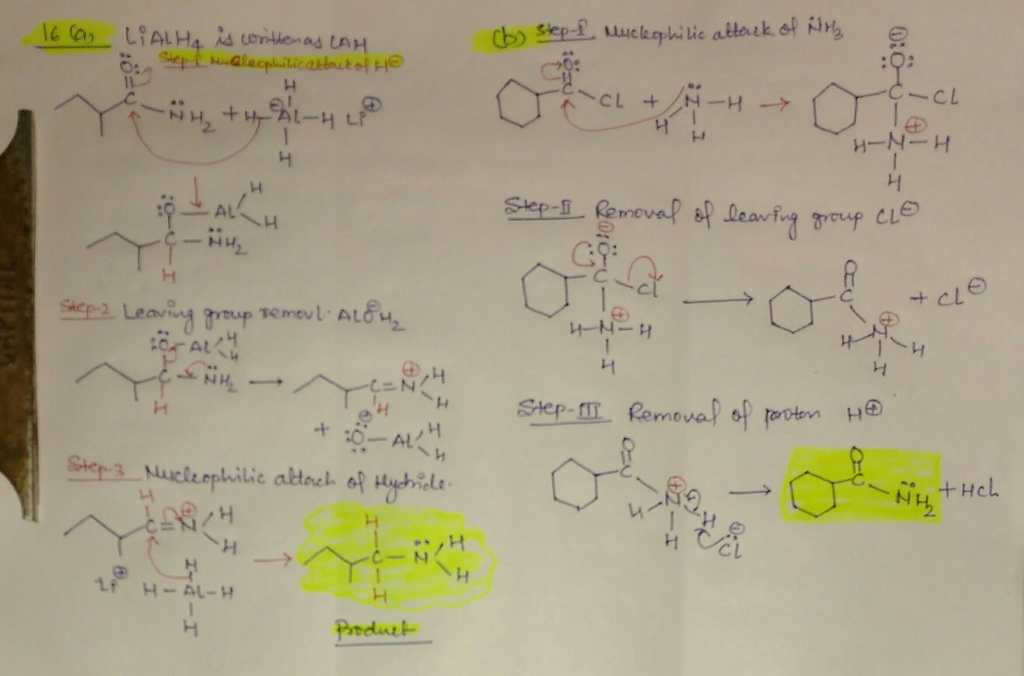 16 (a) LiAlH4 is written as LAH
Step-1 Nucleophilic attack of H⊖
:O:
C
N̈H2 + H-Al-H Li⊕
H
H
⊖
:Ö-Al
H
H
C-N̈H2
H
Step-2 Leaving group removl. AlO⊖H2
:Ö-Al
H
H
C-N̈H2
H
C=N
⊕
H
H
H
+ :Ö-Al
⊖
H
H
Step-3 Nucleophilic attack of Hydride.
H
C=N
⊕
H
H
Li⊕
H
H-Al-H
H
H
C-N̈
H
H
H
Product
(b) Step-I Nucleophilic attack of N̈H3
:O:
C
Cl + N̈-H
H
H
⊖
:Ö:
C-Cl
⊕
H-N-H
H
Step-II Removal of leaving group Cl⊖
⊖
:Ö:
C
Cl
⊕
H-N-H
H
O
C
⊕
N
H
H
H
+ Cl⊖
Step-III Removal of proton H⊕
O
C
⊕
N
H
H
H
⊖
:C̈l
O
C
N̈H2 + HCl